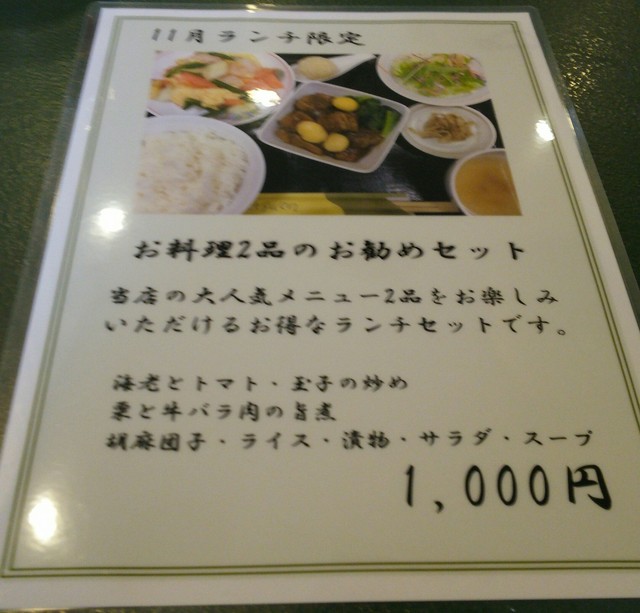 11月ランチ限定
お料理2品のお勧めセット
当店の大人気メニュー2品をお楽しみ
いただけるお得なランチセットです。
海老とトマト・玉子の炒め
栗と牛バラ肉の旨煮
胡麻団子・ライス・漬物・サラダ・スープ
1,000円